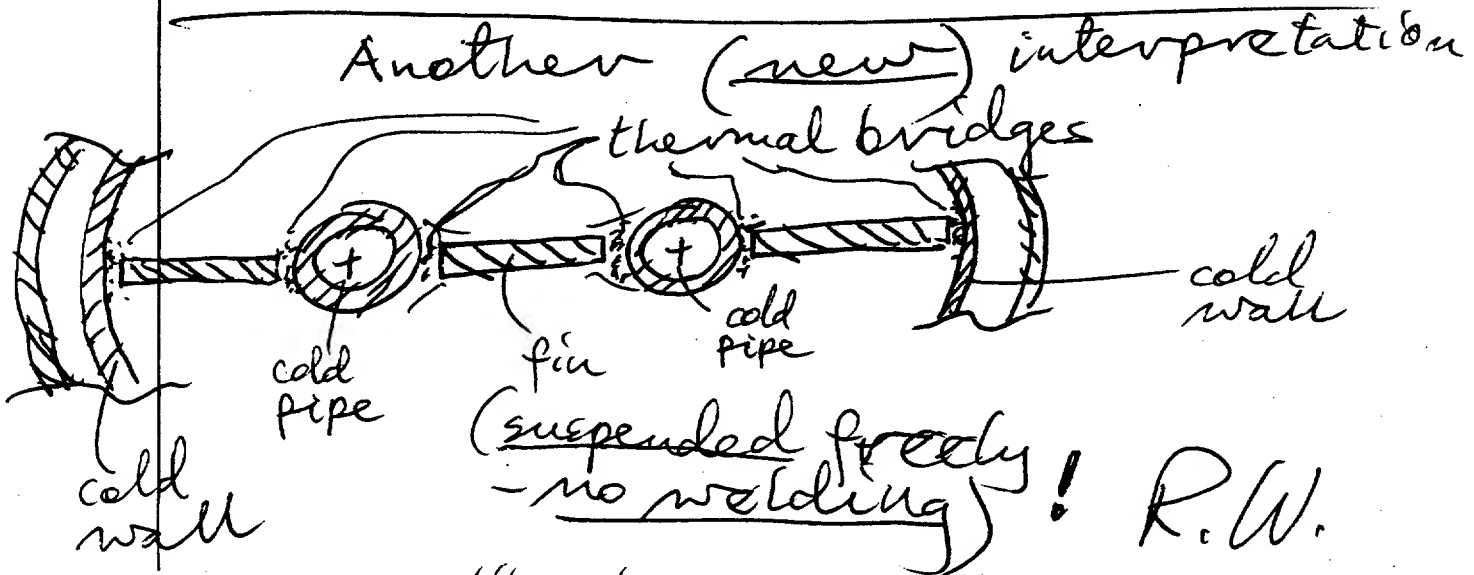 Another (new) interpretation
thermal bridges
cold wall
cold pipe
fin
cold pipe
cold wall
(suspended freely
- no welding)! R.W.